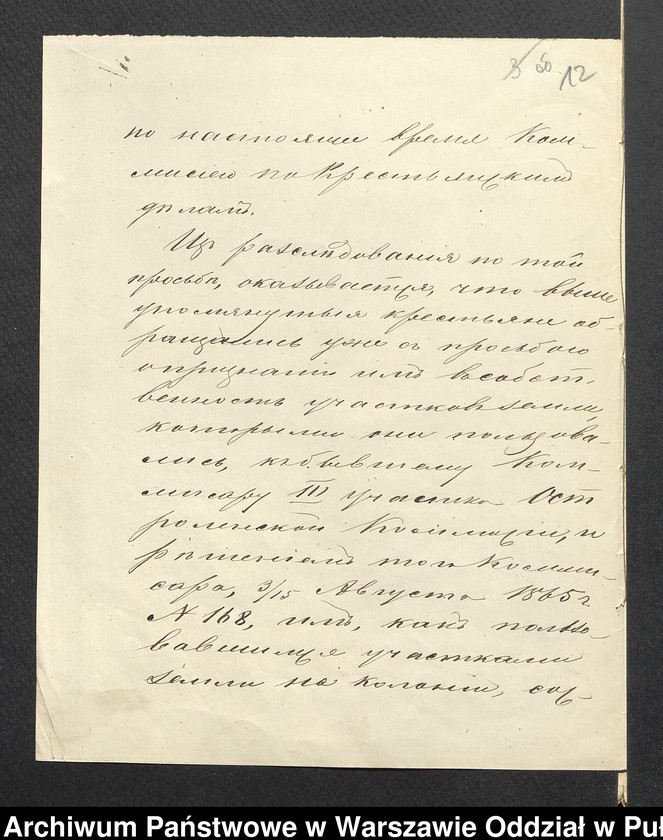 3 50 12
по настоящее время Ком-
мисіею по Крестьянскимъ
дѣламъ.
Изъ разслѣдованія по той
просьбѣ, оказывается, что выше
упомянутыя крестьяне об-
ращались уже съ просьбою
о признаніи имъ въ собст-
венность участковъ земли,
которыми они пользова-
лись, къ бывшему Ком-
мисару III участка Ост
роленской Коммисіи, и
рѣшеніемъ того Коммис-
сара, 3/15 Августа 1865 г.
N 168, имъ, какъ пользо-
вавшимся участками
земли на колоніи,
Archiwum Państwowe w Warszawie Oddział w Pu